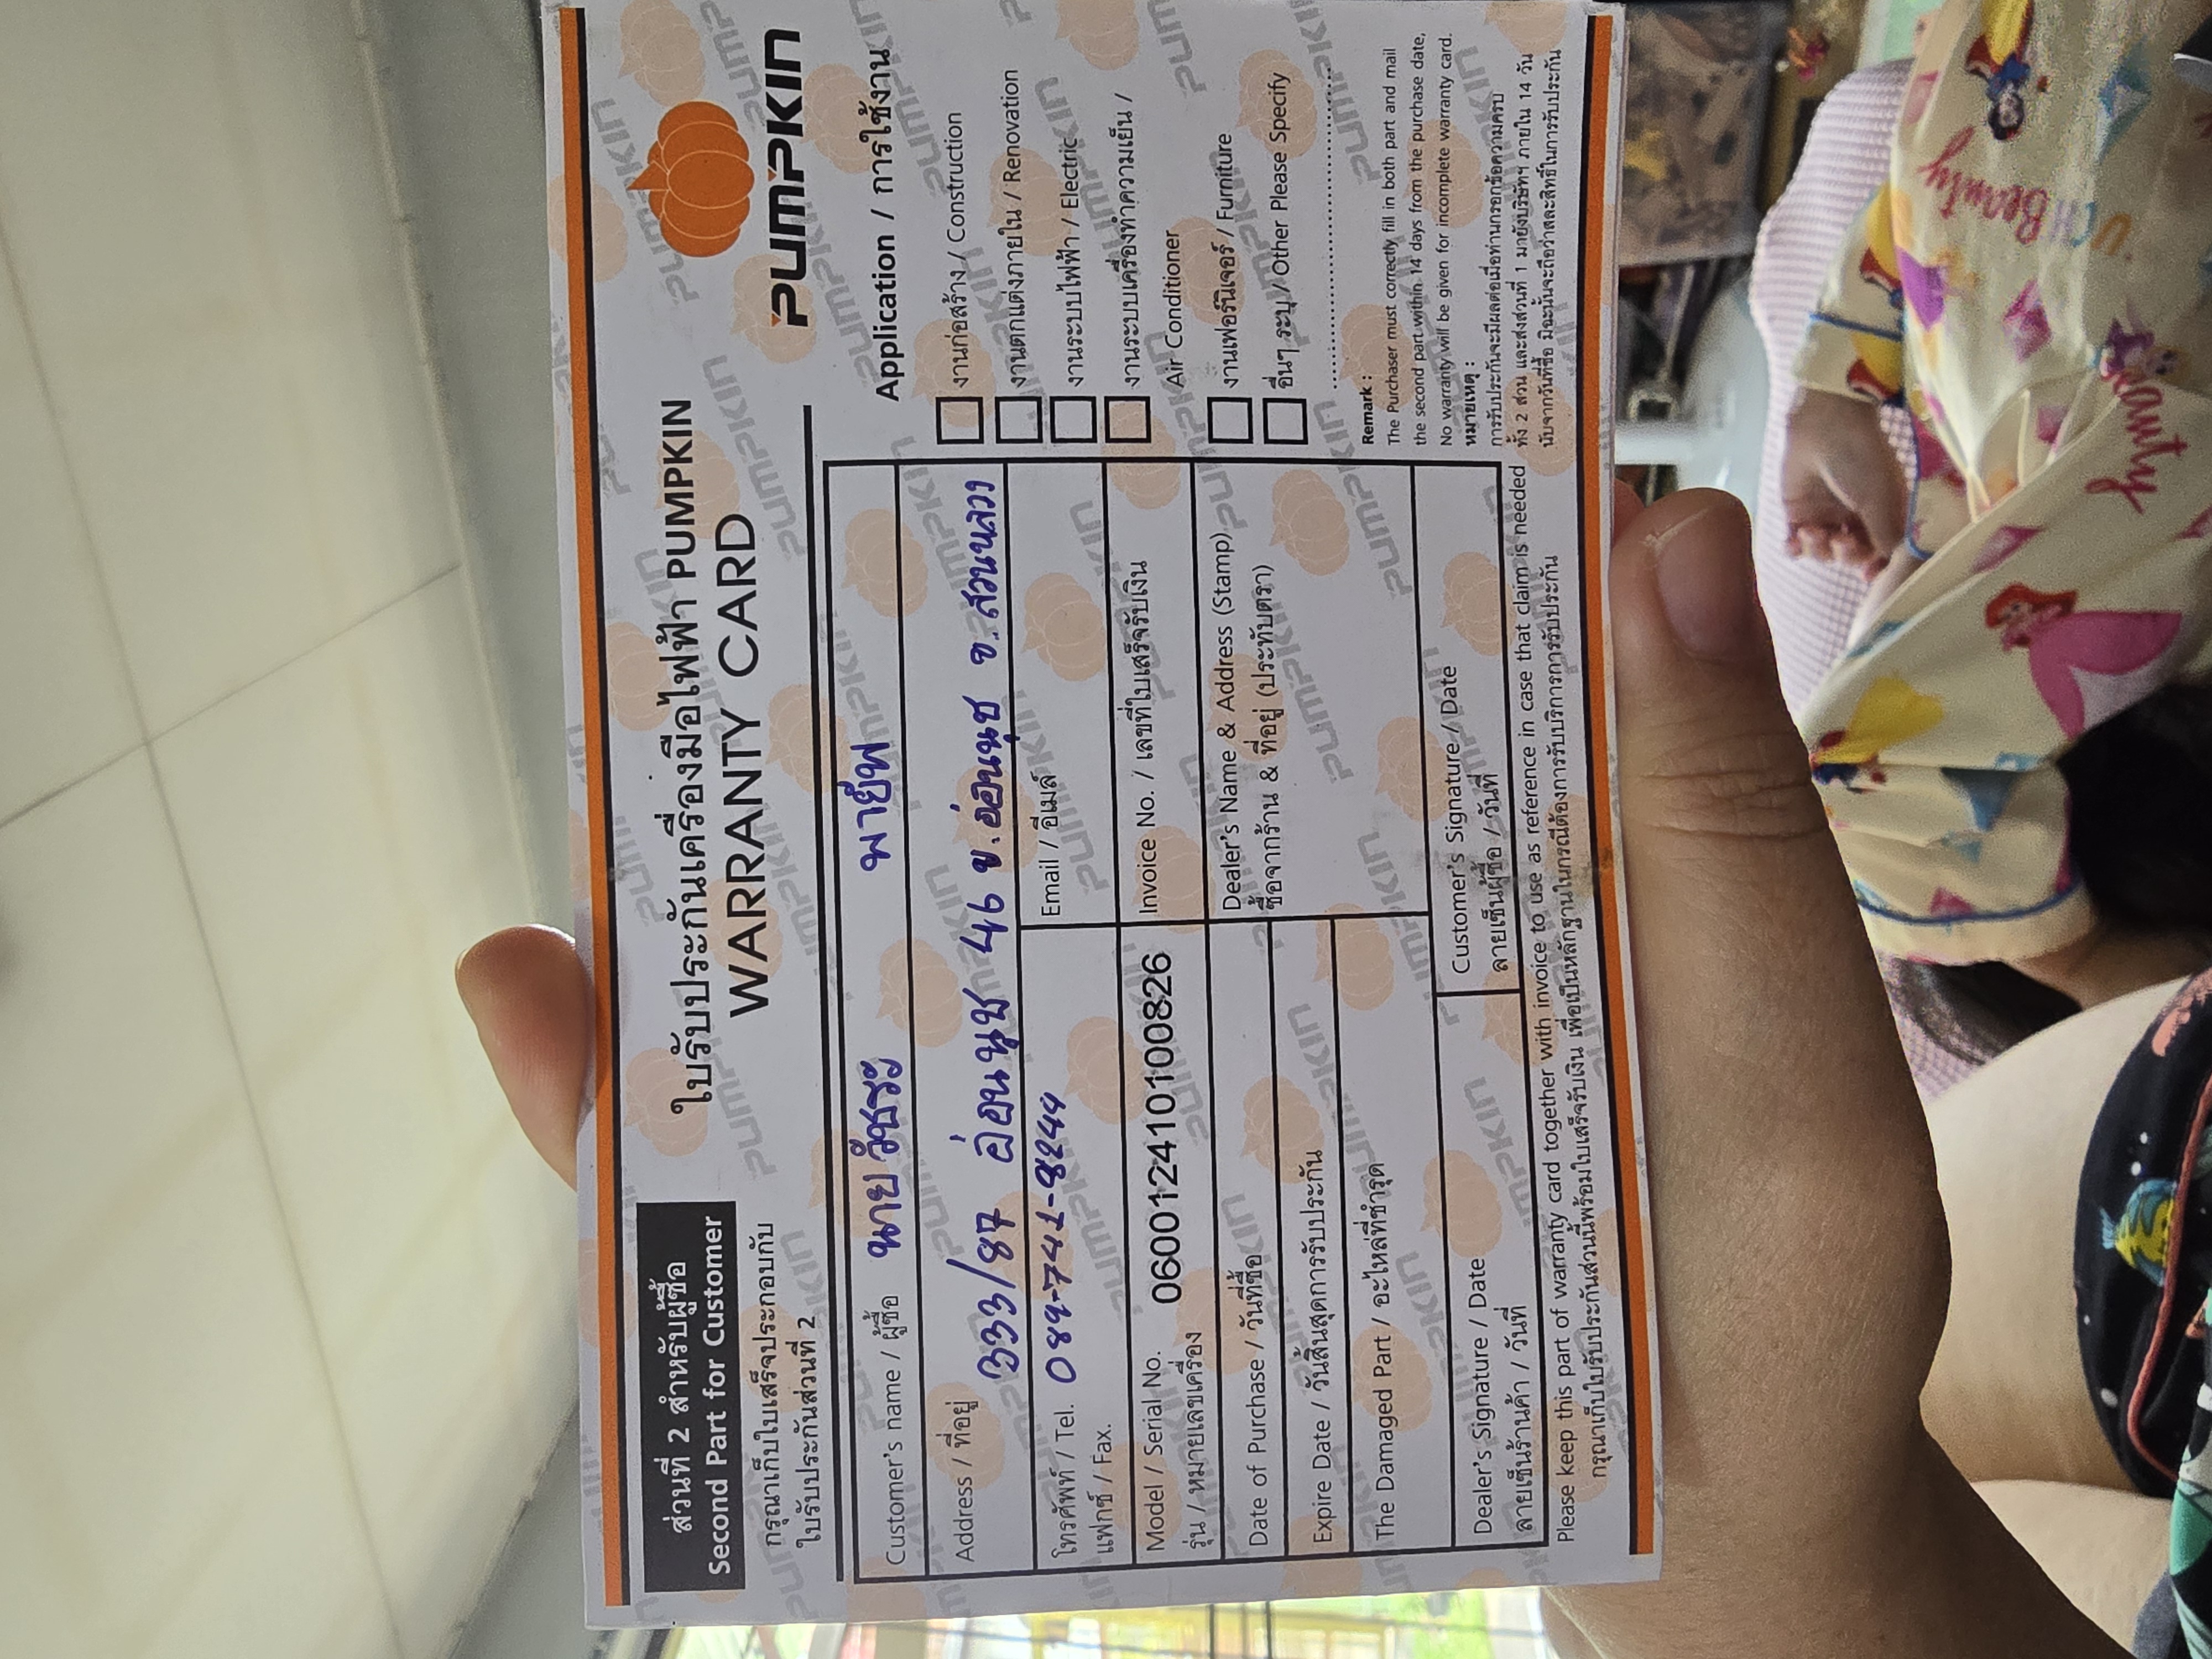 ส่วนที่ 2 สำหรับผู้ซื้อ
Second Part for Customer
กรุณาเก็บใบเสร็จประกอบกับ
ใบรับประกันส่วนที่ 2
ใบรับประกันเครื่องมือไฟฟ้า PUMPKIN
WARRANTY CARD
PUMPKIN
Customer's name / ผู้ซื้อ นายวัชระ พายัพ
Address / ที่อยู่ 333/87 อ่อนนุช 46 ข.อ่อนนุช ข.สวนหลวง
โทรศัพท์ / Tel. 089-741-8244
แฟกซ์ / Fax.
Email / อีเมล์
Model / Serial No. 060012410100826
รุ่น / หมายเลขเครื่อง
Invoice No. / เลขที่ใบเสร็จรับเงิน
Date of Purchase / วันที่ซื้อ
Dealer's Name & Address (Stamp)
ซื้อจากร้าน & ที่อยู่ (ประทับตรา)
Expire Date / วันสิ้นสุดการรับประกัน
The Damaged Part / อะไหล่ที่ชำรุด
Dealer's Signature / Date
ลายเซ็นร้านค้า / วันที่
Customer's Signature / Date
ลายเซ็นผู้ซื้อ / วันที่
Application / การใช้งาน
งานก่อสร้าง / Construction
งานตกแต่งภายใน / Renovation
งานระบบไฟฟ้า / Electric
งานระบบเครื่องทำความเย็น /
Air Conditioner
งานเฟอร์นิเจอร์ / Furniture
อื่นๆ ระบุ / Other Please Specify
Remark :
The Purchaser must correctly fill in both part and mail
the second part within 14 days from the purchase date,
No warranty will be given for incomplete warranty card.
หมายเหตุ :
การรับประกันจะมีผลต่อเมื่อท่านกรอกข้อความครบ
ทั้ง 2 ส่วน และส่งส่วนที่ 1 มายังบริษัทฯ ภายใน 14 วัน
นับจากวันที่ซื้อ มิฉะนั้นจะถือว่าสละสิทธิ์ในการรับประกัน
Please keep this part of warranty card together with invoice to use as reference in case that claim is needed
กรุณาเก็บใบรับประกันส่วนนี้พร้อมใบเสร็จรับเงิน เพื่อเป็นหลักฐานในกรณีต้องการรับบริการการรับประกัน
Beauty